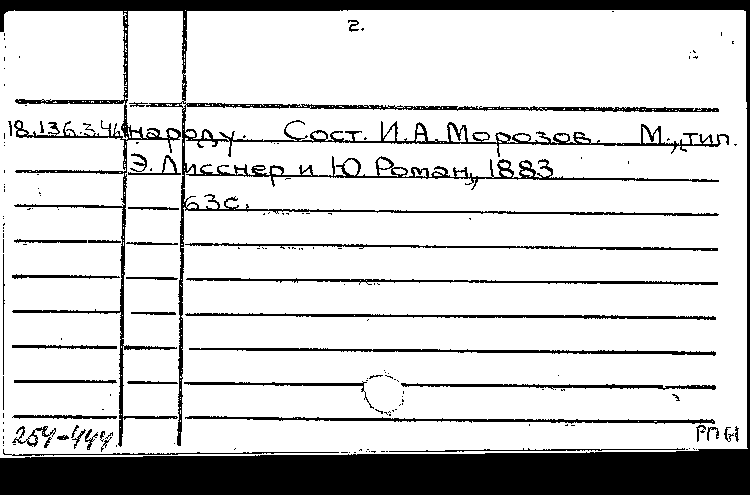 2.
18.136.3.46 народу. Сост. И.А. Морозов. М., тип.
Э. Лисснер и Ю. Роман, 1883
63с.
254-444
РПБ